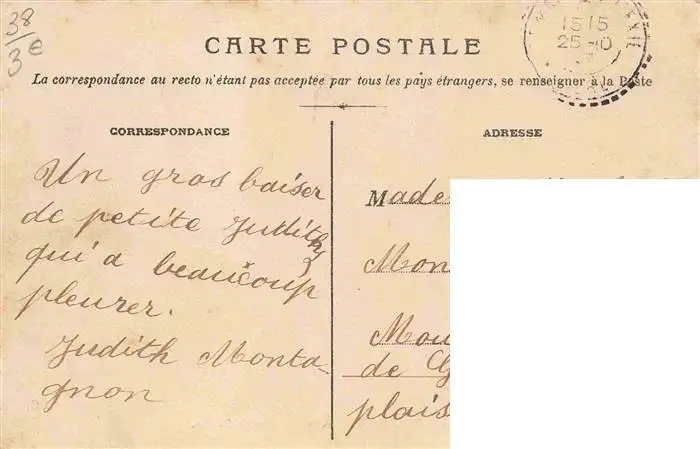 38
3€
15 15
25-10
CARTE POSTALE
La correspondance au recto n'étant pas acceptée par tous les pays étrangers, se renseigner à la Poste
CORRESPONDANCE
Un gros baiser
de petite Judith
qui a beaucoup
pleurer.
Judith Monta-
gnon
ADRESSE
Made
Mon
Mou
de G
plais